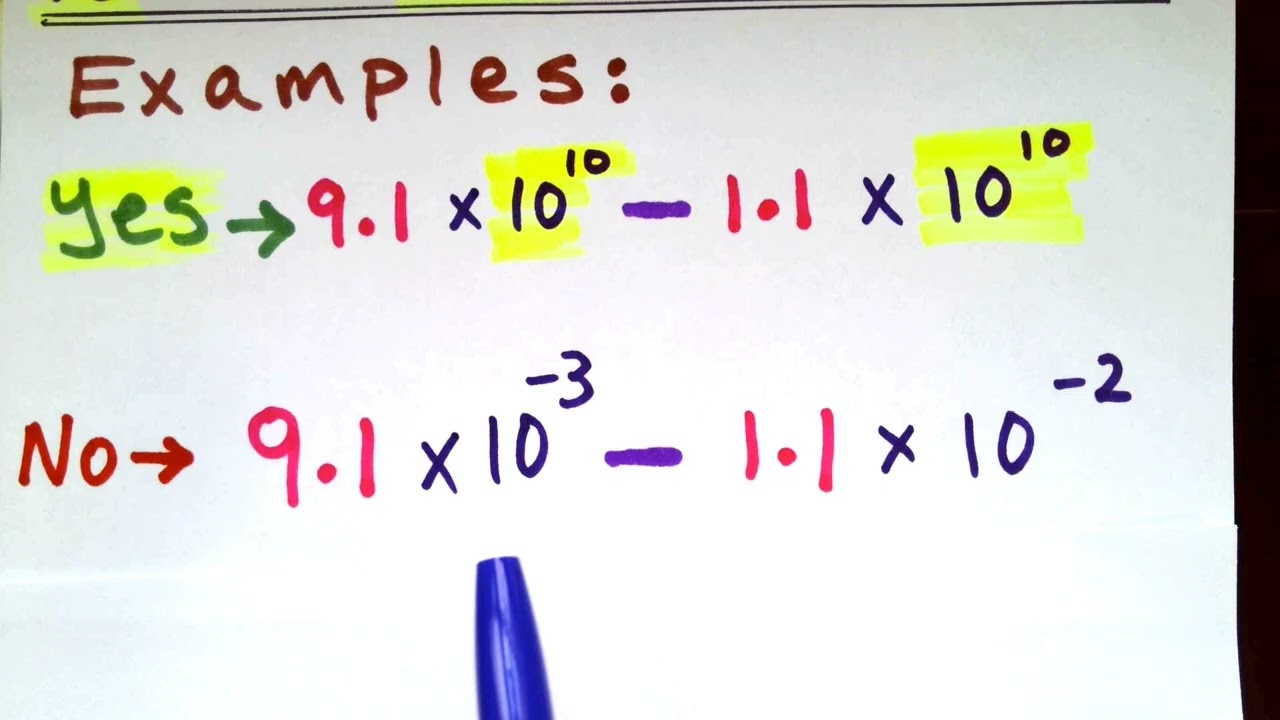 Examples:
Yes → 9.1 × 10¹⁰ − 1.1 × 10¹⁰
No → 9.1 × 10⁻³ − 1.1 × 10⁻²